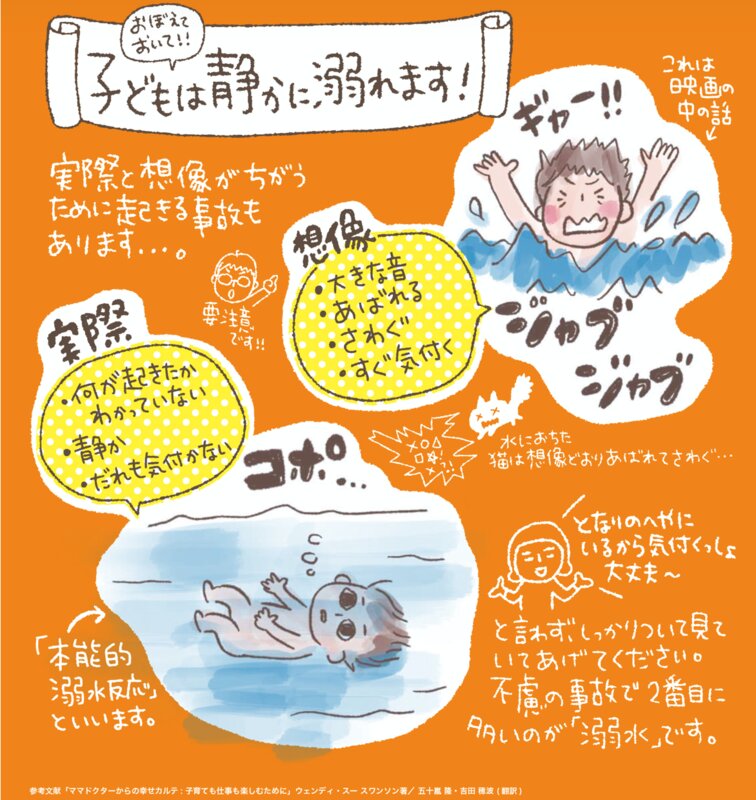 おぼえて
おいて!!
子どもは静かに溺れます!
これは
映画の
中の話
ギャー!!
実際と想像がちがう
ために起きる事故も
あります...。
要注意
です!!
想像
・大きな音
・あばれる
・さわぐ
・すぐ気付く
ジャブ
ジャブ
実際
・何が起きたか
わかっていない
・静か
・だれも気付かない
水におちた
猫は想像どおりあばれてさわぐ...
コポ...
「本能的
溺水反応」
といいます。
となりのへやに
いるから気付くっしょ
大丈夫~
と言わず、しっかりついて見て
いてあげてください。
不慮の事故で2番目に
多いのが「溺水」です。
参考文献「ママドクターからの幸せカルテ:子育ても仕事も楽しむために」ウェンディ・スー スワンソン著/ 五十嵐 隆・吉田 穂波 (翻訳)